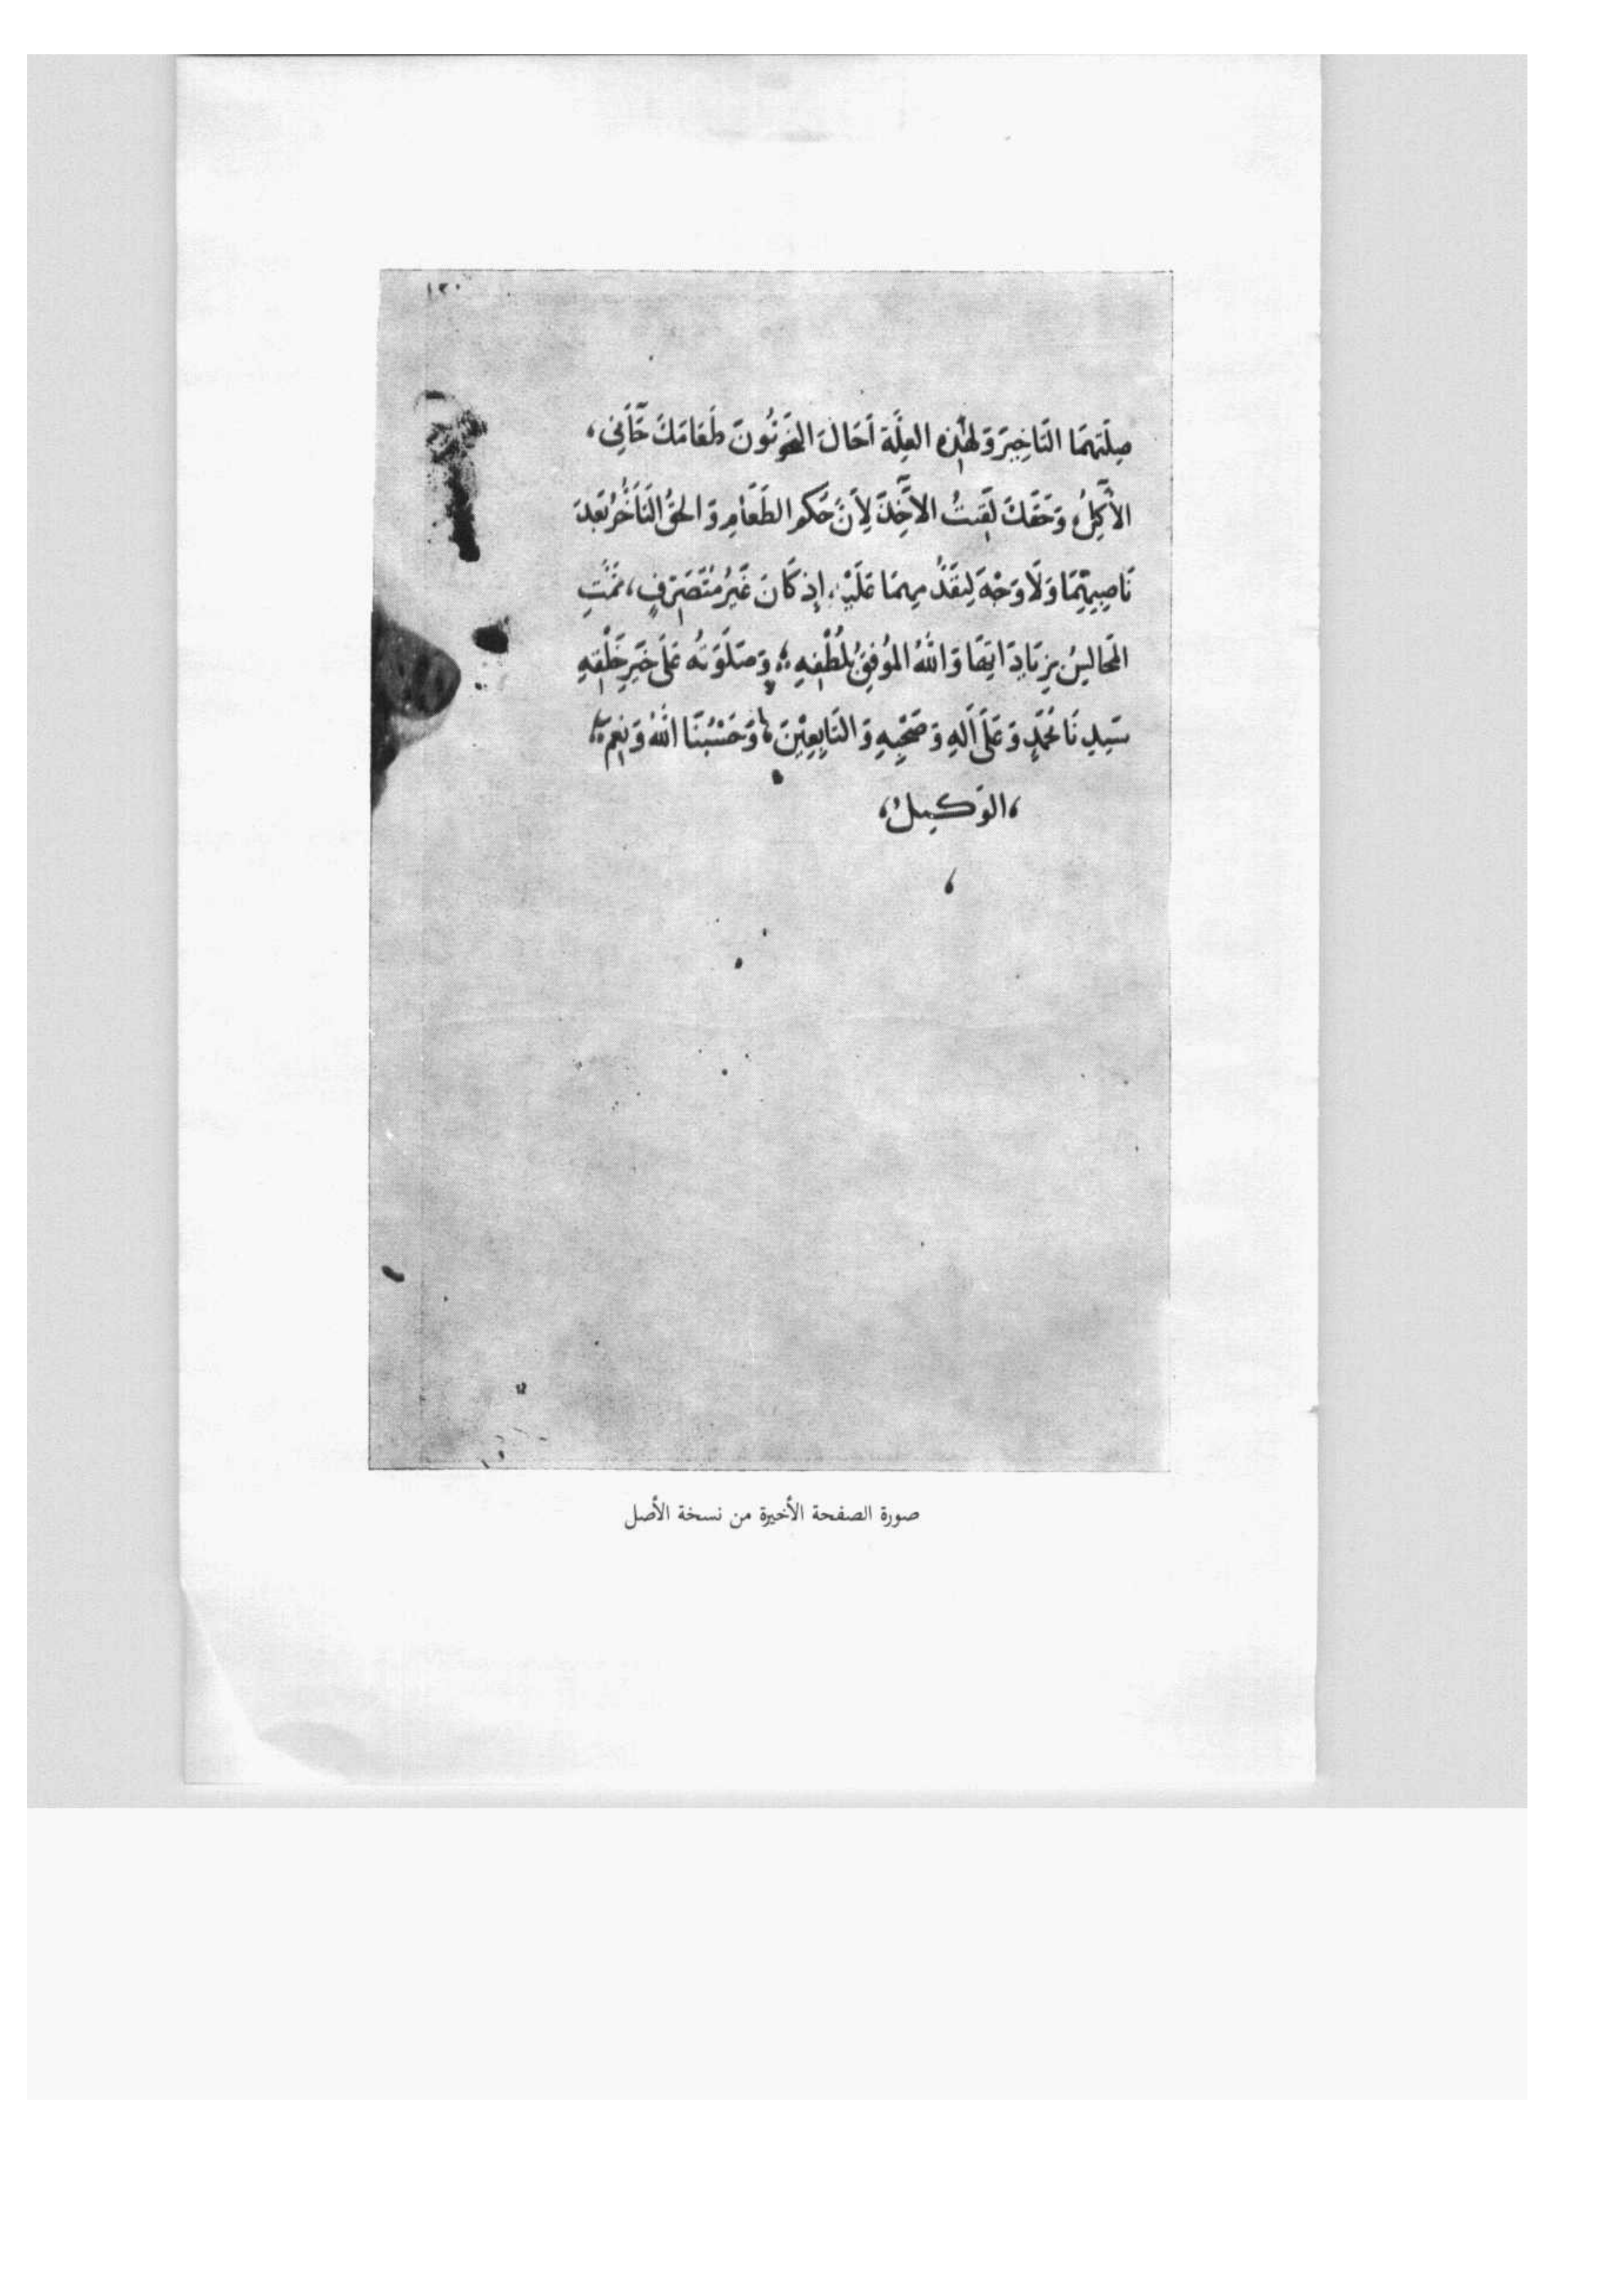 ١٢٠
صِلَتِهِمَا التَّاخِيرَ وَلِهٰذِهِ العِلَّة اَحَالَ النَّحْوِيُّونَ طَعَامَكَ جَآءَنِى،
الآكِلُ وَحَقَّكَ لَقِيتُ الآخِذَ لِاَنَّ حُكم الطَّعَامِ وَالحَقِّ التَّاَخُّرُ بَعدَ
نَاصِبِهِمَا وَلَا وَجْهَ لِتَقَدُّمِهِمَا عَلَيْهِ اِذ كَانَ غَيْرُ مُتَصَرِّفٍ، تمَّتِ
المَجَالِسُ بِزِيَادَاتِهَا وَاللهُ المُوَفِّقُ بِلُطْفِهِ وَصَلَوٰتُهُ عَلَى خَيرِ خَلْقِهِ
سَيِّدِنَا مُحَمَّدٍ وَعَلَى آلِهِ وَصَحْبِهِ وَالتَّابِعِيْنَ وَحَسْبُنَا اللهُ وَنِعمَ
الوَكِيلُ
صورة الصفحة الأخيرة من نسخة الأصل